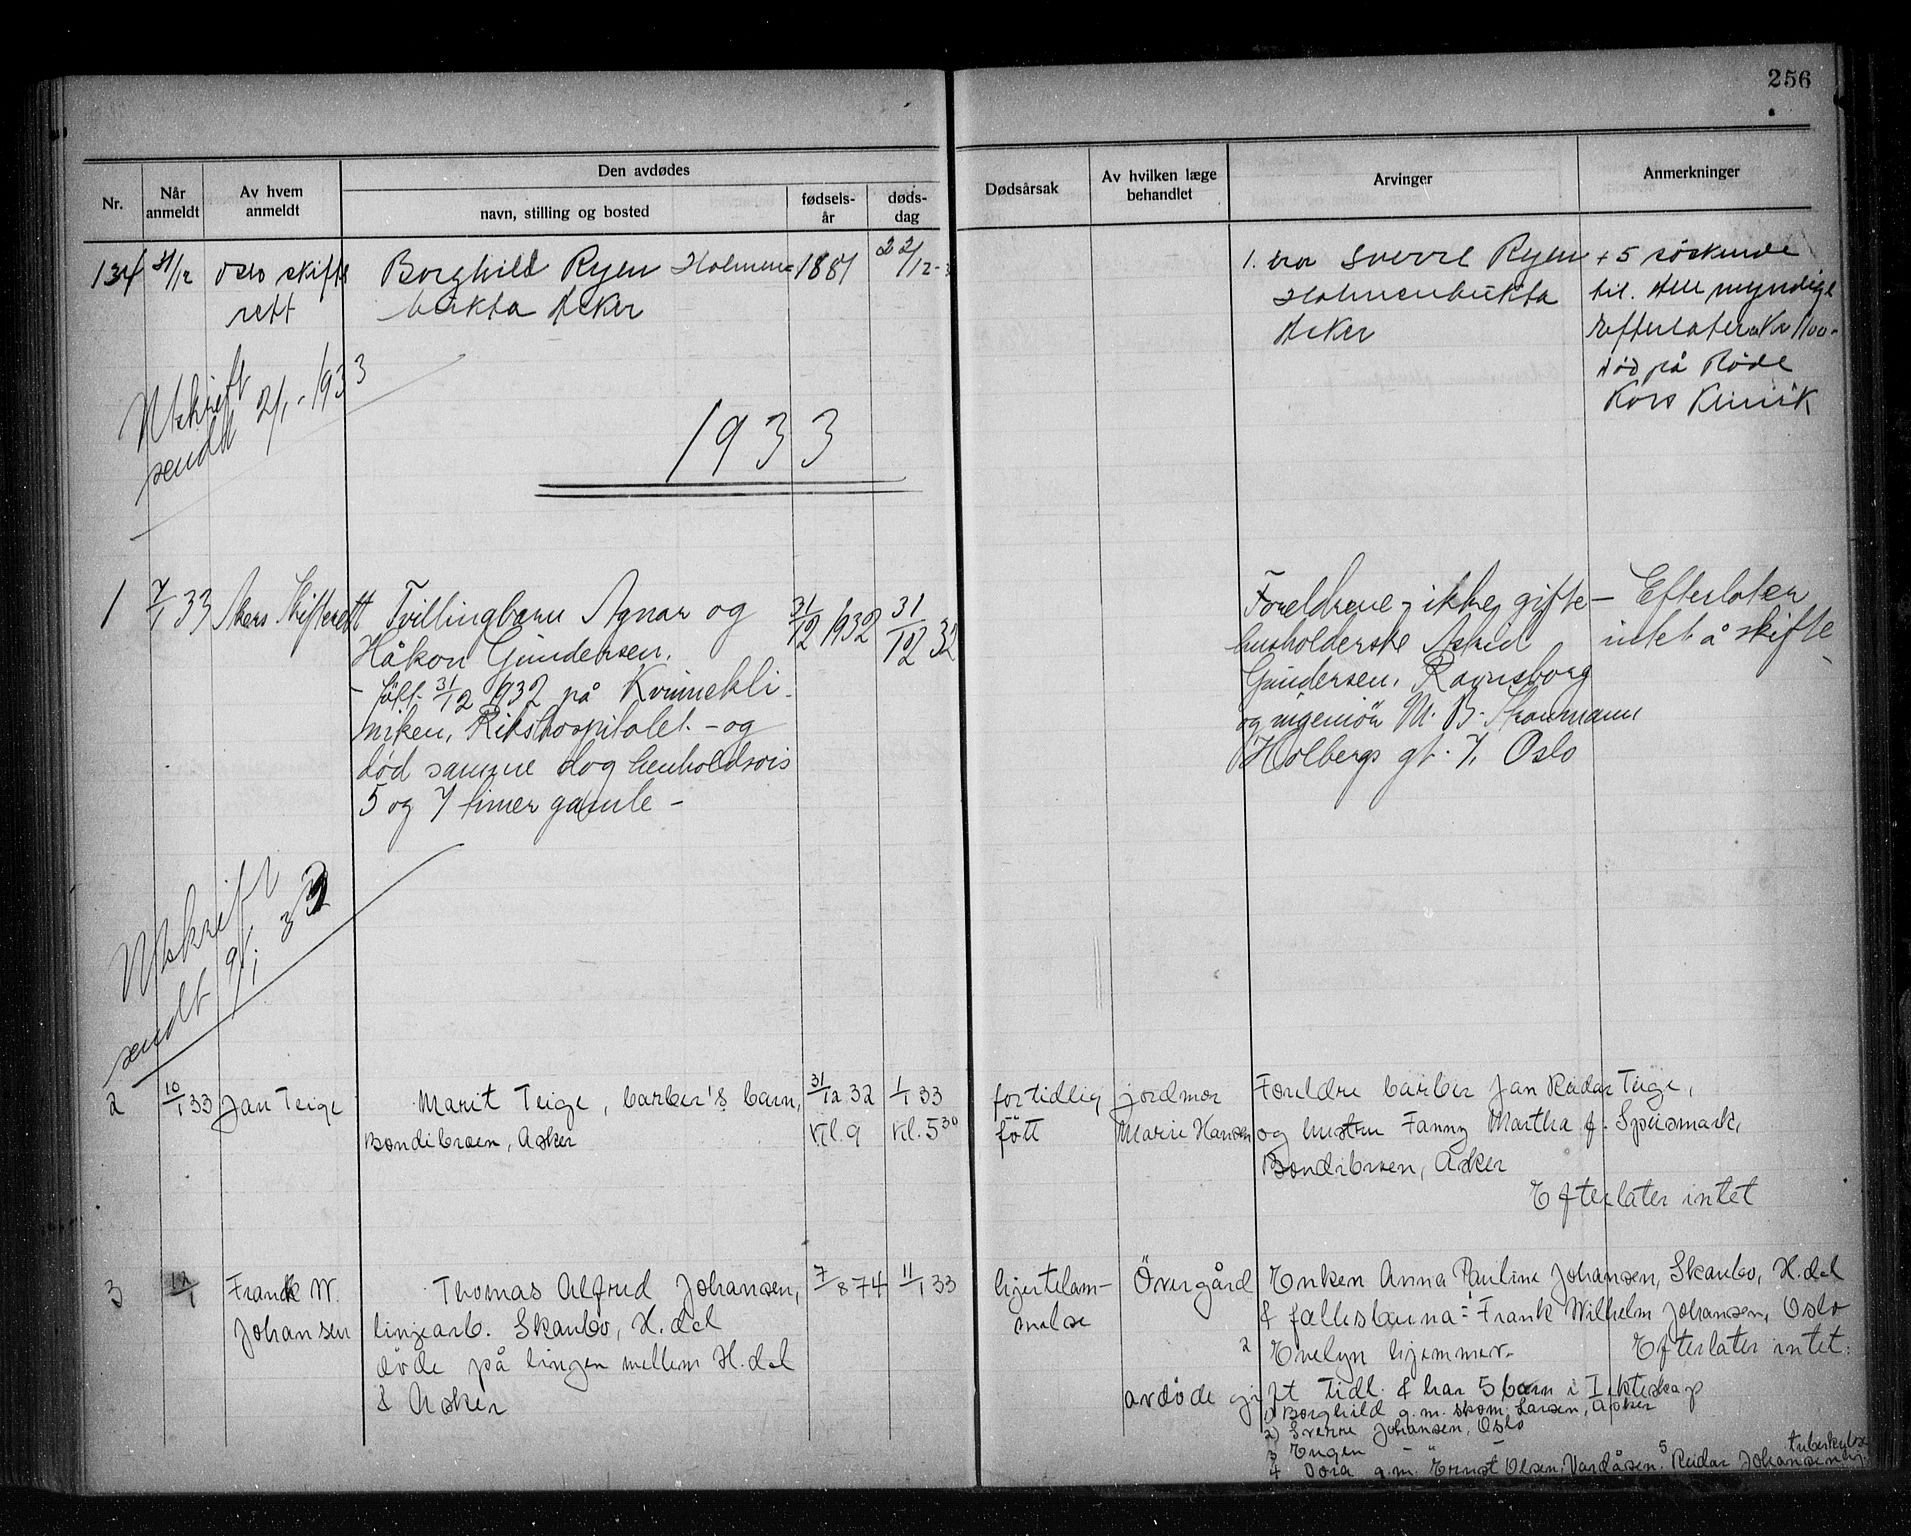 256
Nr.
Når anmeldt
Av hvem anmeldt
Den avdødes
navn, stilling og bosted
fødsels-år
døds-dag
Dødsårsak
Av hvilken læge behandlet
Arvinger
Anmerkninger
134 31/12 Oslo skifte
rett
Borghild Ryen Holmen-
bukta Asker
1881
22/12-3
1. bror Sverre Ryen
Holmenbukta
Asker
+ 5 söskende
til. Alle myndige
Efterlater Kr 1100-
død på Røde
Kors Klinik
Utskrift
sendt 2/1-1933
1933
1 7/1 33 Akers Skifterett
Tvillingbarn Agnar og
Håkon Gundersen.
- født 31/12 1932 på Kvinnekli-
niken, Rikshospitalet - og
død samme dag henholdsvis
5 og 7 timer gamle -
31/12 1932
31/12 32
Foreldrene - ikke gifte -
husholderske Astrid
Gundersen, Ravnsborg
og ingeniör M. B.
Holbergs gt. 7, Oslo
Efterlater
intet å skifte -
Utskrift
sendt 9/1 33
2 10/1 33 Jan Teige
Marit Teige, barber's barn,
Bondibroen, Asker
31/12 32
Kl. 9
1/1 33
Kl. 5 30
for tidlig
fött
jordmor
Marie Hansen
Foreldre barber Jan Reidar Teige,
og hustru Fanny Martha f. Speismark,
Bondibroen, Asker
Efterlater intet
3 12/1 Frank W.
Johansen
Thomas Alfred Johansen,
linjearb. Skaubo, H.dal
døde på linjen mellem H.dal
& Asker
7/8 74
11/1 33
hjertelam-
melse
Övergård
Enken Anna Pauline Johansen, Skaubo, H.dal
& fellesbarna: 1 Frank Wilhelm Johansen, Oslo
2 Evelyn hjemmev.
Efterlater intet.
avdøde gift tidl. & har 5 barn i 1 ekteskap
1) Borghild g.m. skom. Larsen, Asker
2) Sverre Johansen, Oslo
3 Eugen - " -
4 Dora g.m. Ernst Olsen, Vardåsen. 5 Reidar Johansen